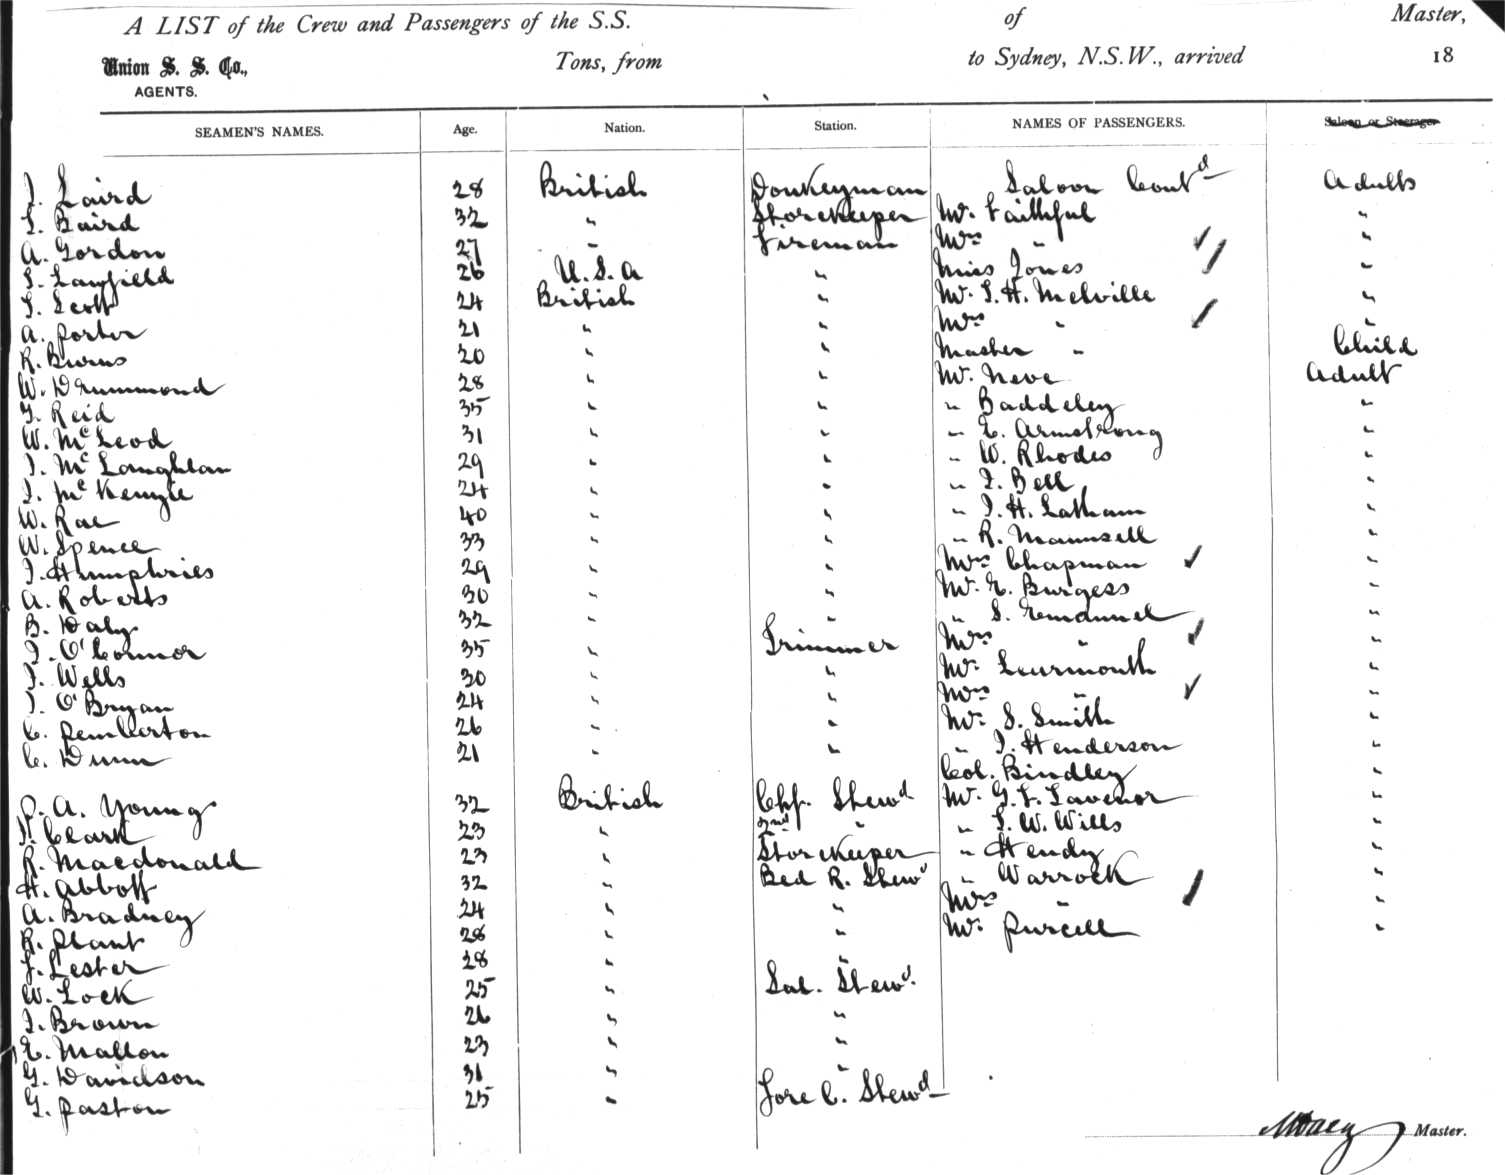 A LIST of the Crew and Passengers of the S.S. of Master,
Union S. S. Co., Tons, from to Sydney, N.S.W., arrived 18
AGENTS.
SEAMEN'S NAMES. Age. Nation. Station. NAMES OF PASSENGERS. Saloon or Steerage
J. Laird 28 British Donkeyman Saloon Contd Adults
T. Baird 32 " Storekeeper Mr. Faithful "
A. Gordon 27 " Fireman Mrs " "
S. Layfield 26 U.S.A " Miss Jones "
T. Scott 24 British " Mr. T. H. Melville "
A. Porter 21 " " Mrs " "
R. Burns 20 " " Master " Child
W. Drummond 28 " " Mr. Neve Adult
G. Reid 35 " " " Baddeley "
W. McLeod 31 " " " E. Armstrong "
J. McLaughlan 29 " " " W. Rhodes "
J. McKenzie 24 " " " J. Bell "
W. Rae 40 " " " J. H. Latham "
W. Spence 33 " " " R. Maunsell "
J. Humphries 29 " " Mrs Chapman "
A. Roberts 30 " " Mr. E. Burgess "
B. Daly 32 " " " S. Emanuel "
J. O'Connor 35 " Trimmer Mrs " "
J. Wells 30 " " Mr. Learmouth "
J. O'Bryan 24 " " Mrs " "
C. Pemberton 26 " " Mr. S. Smith "
C. Dunn 21 " " " J. Henderson "
Col. Bindley "
P. A. Young 32 British Chf. Stewd Mr. G. F. Lavenor "
J. Clark 23 " 2nd " " T. W. Wills "
R. Macdonald 23 " Storekeeper " Hendy "
H. Abbott 32 " Bed R. Stewd " Warrock "
A. Bradney 24 " " Mrs " "
R. Plant 28 " " Mr. Purcell "
J. Lester 28 " "
W. Lock 25 " Sal. Stewd.
J. Brown 26 " "
E. Mallon 23 " "
G. Davidson 31 " "
G. Paston 25 " Fore C. Stewd
Master.